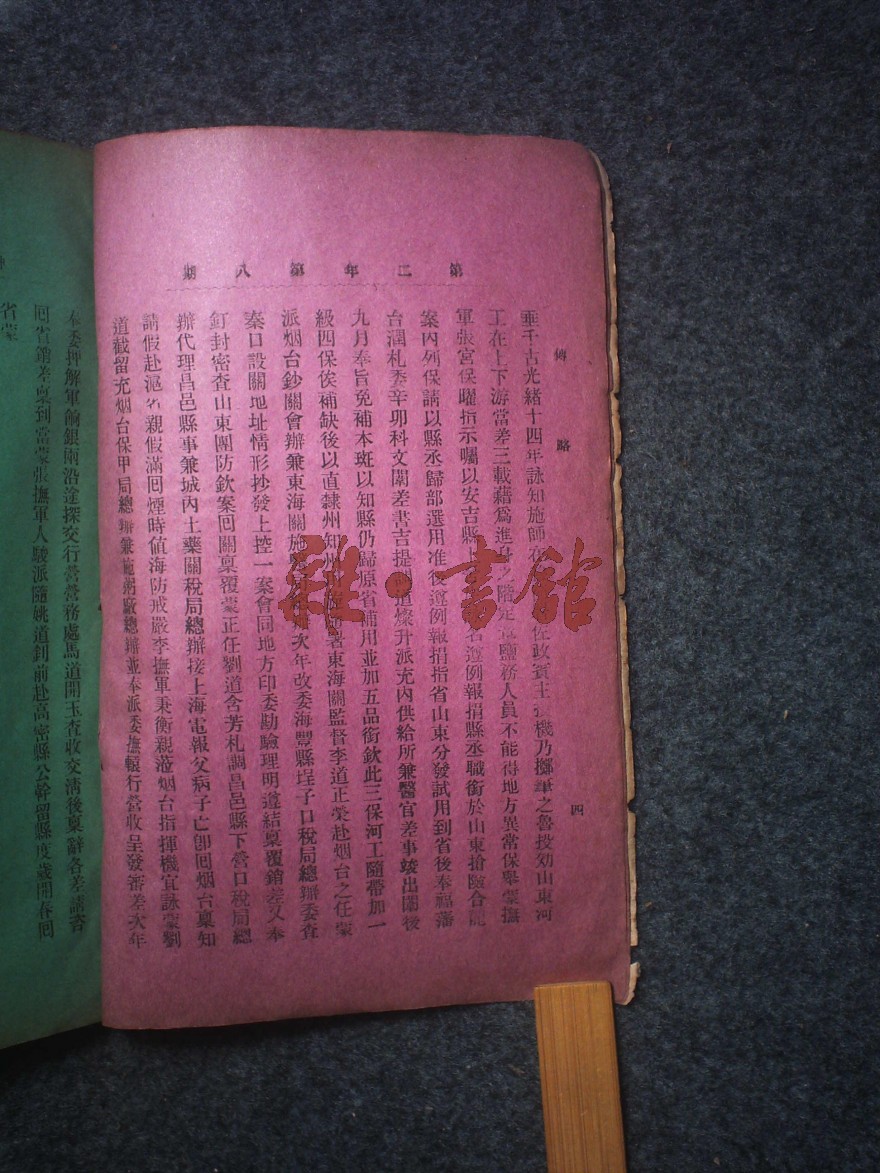 第二年第八期
傳略
四
垂千古光緒十四年詠知施師在佐政賓主機乃擲筆之魯投効山東河
工在上下游當差三載藉爲進身之階定章鹽務人員不能得地方異常保舉蒙撫
軍張宮保曜指示囑以安吉縣名遵例報捐縣丞職銜於山東搶險合龍
案內列保請以縣丞歸部選用准後遵例報捐指省山東分發試用到省後奉福藩
台潤札委辛卯科文闈差書吉提調道燦升派充內供給所兼醫官差事竣出闈後
九月奉旨免補本班以知縣仍歸原省補用並加五品銜欽此三保河工隨帶加一
級四保俟補缺後以直隸州知州署東海關監督李道正榮赴烟台之任蒙
派烟台鈔關會辦兼東海關施次年改委海豐縣埕子口稅局總辦委查
秦口設關地址情形抄發上控一案會同地方印委勘驗理明遵結稟覆銷差又奉
釘封密查山東團防欽案回關稟覆蒙正任劉道含芳札調昌邑縣下營口稅局總
辦代理昌邑縣事兼城內土藥關稅局總辦接上海電報父病子亡卽回烟台稟知
請假赴滬省親假滿回煙時値海防戒嚴李撫軍秉衡親蒞烟台指揮機宜詠蒙劉
道截留充烟台保甲局總辦兼施粥廠總辦並奉派委撫轅行營收呈發審差次年
奉委押解軍餉銀兩沿途探交行營營務處馬道開玉查收交淸後稟辭各差請咨
回省銷差稟到當蒙張撫軍人駿派隨姚道釗前赴高密縣公幹留縣度歲開春回
省蒙
雜·書館